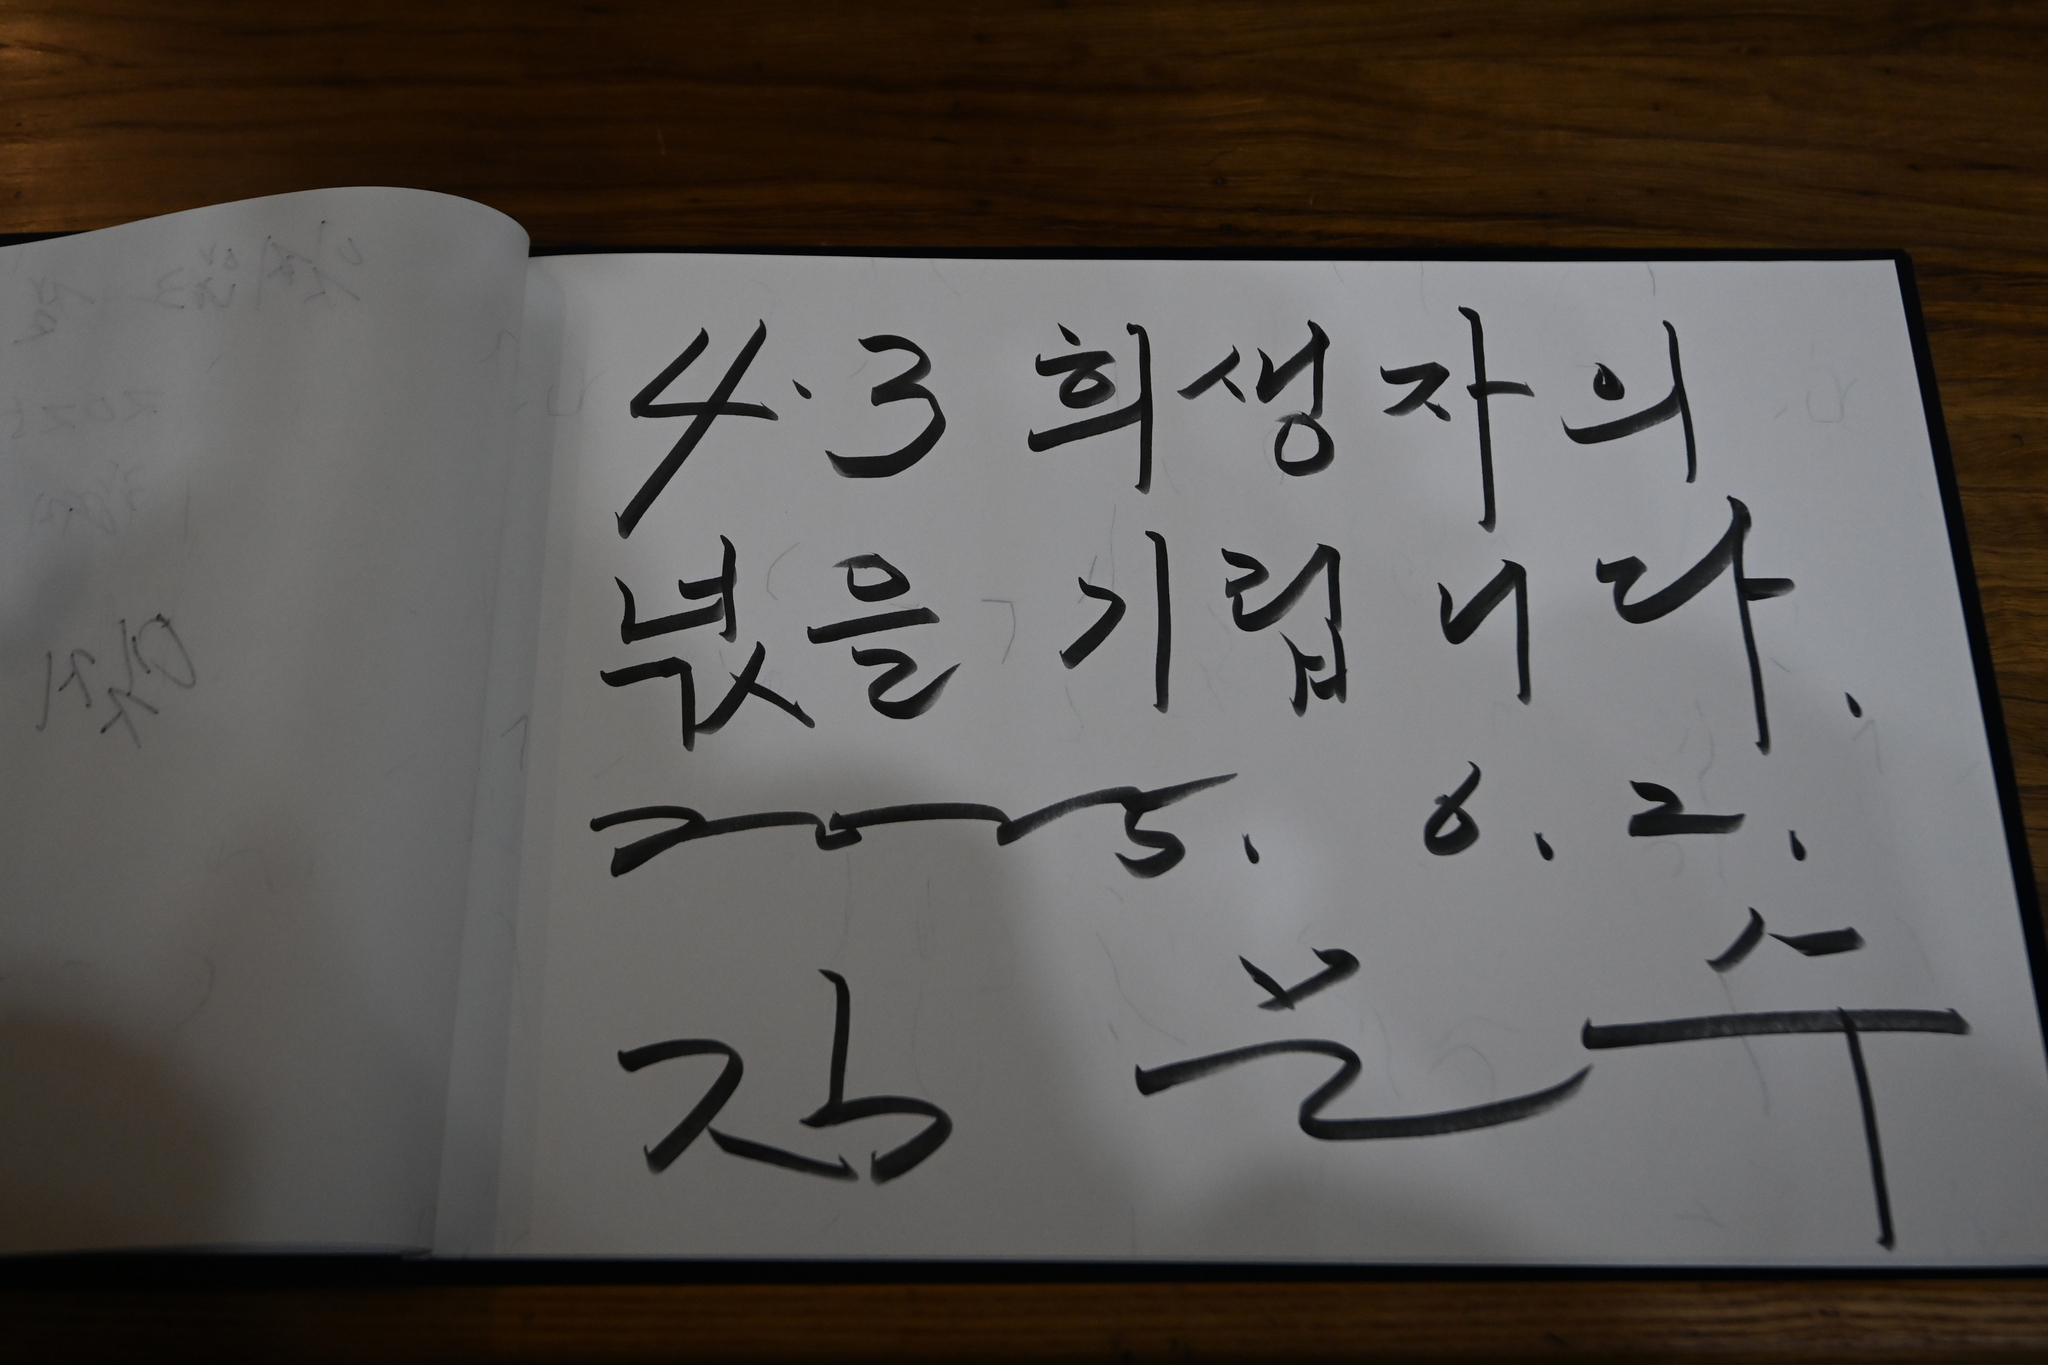 4·3 희생자의
넋을 기립니다.
2025. 6. 2.
김문수